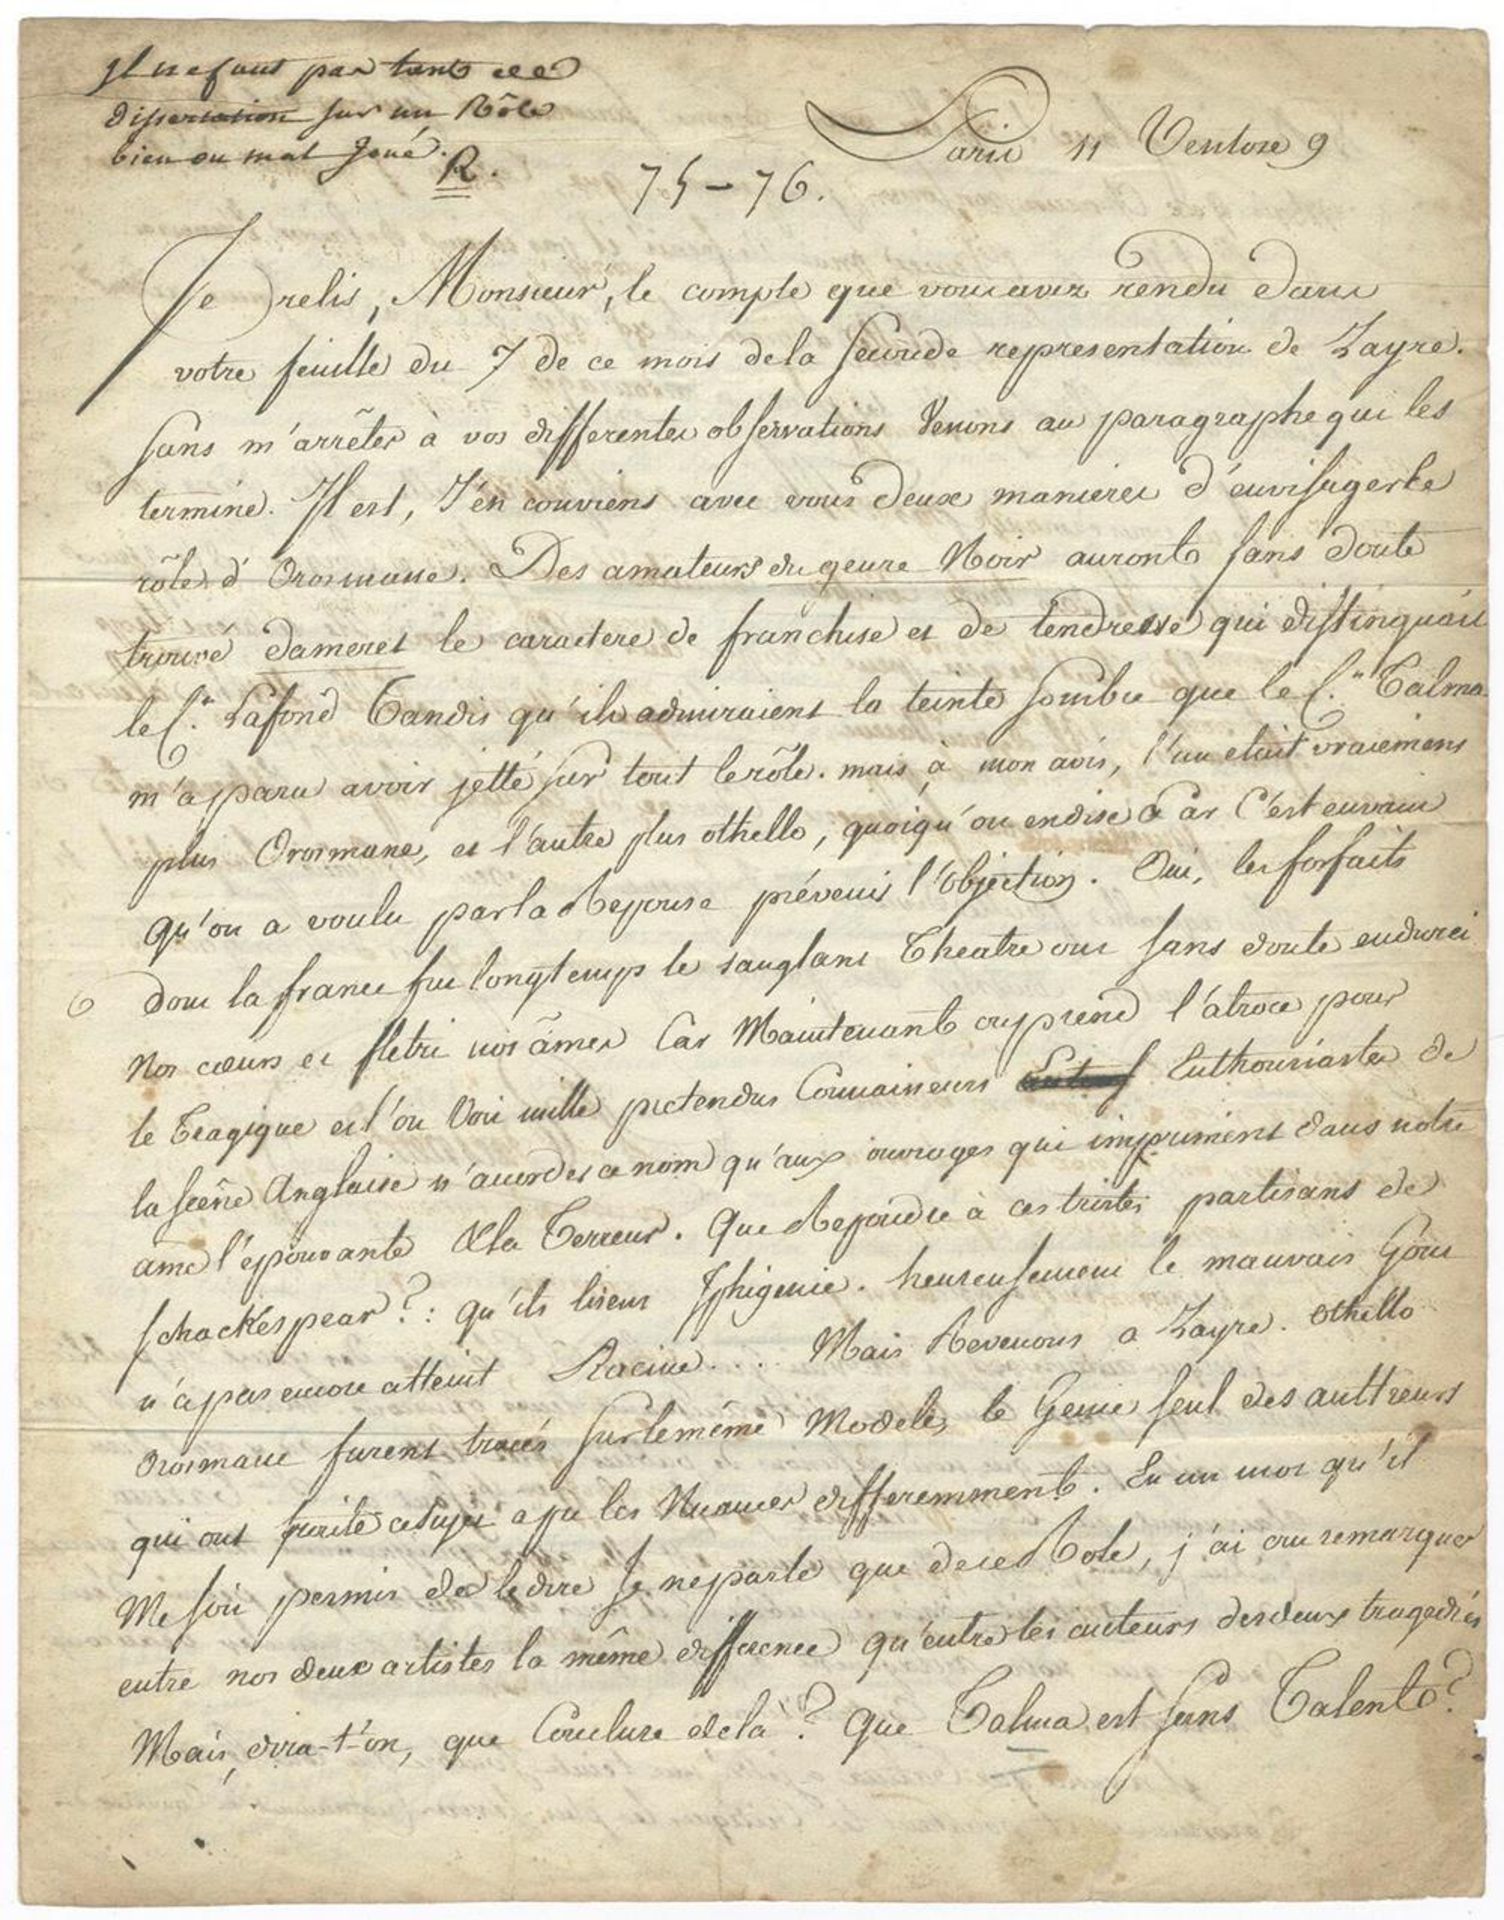 Il ne faut pas tant de
dissertation sur un Rôle
bien ou mal Joué.
R.
Paris 11 Ventose 9
75-76.
Je relis, Monsieur, le compte que vous avez rendu dans
votre feuille du 7 de ce mois de la seconde representation de Zayre.
sans m'arrêter à vos differentes observations venons au paragraphe qui les
termine. Il est, J'en conviens avec vous deux manieres d'envisager le
rôle d'Orosmane. Des amateurs du genre Noir auront sans doute
trouvé dameret le caractere de franchise et de tendresse qui distinguait
le C.en Lafond tandis qu'ils admiraient la teinte sombre que le C.en Talma
m'a paru avoir jetté sur tout le rôle. mais à mon avis, l'un etait vraiement
plus Orosmane, et l'autre plus othello, quoiqu'on en dise Car C'est envain
qu'on a voulu par la Reponse prévenir l'objection. Oui, les forfaits
dont la france fut longtemps le sanglant Theatre ont sans doute endurci
nos cœurs et fletri nos âmes Car Maintenant on prend l'atroce pour
le Tragique et l'on Voit mille pretendus Connaisseurs Enthousiastes de
la scêne Anglaise n'accorder ce nom qu'aux ouvrages qui impriment dans notre
ame l'épouvante & la Terreur. Que Repondre à ces tristes partisans de
Schackespear? : qu'ils lisent Iphigenie. heureusement le mauvais Gout
n'a pas encore atteint Racine... Mais Revenons a Zayre. Othello
Orosmane furent tracés sur le même Modele, le Genie seul des autteurs
qui ont traité ce sujet a pu les Nuancer differemment. En un mot qu'il
Me soit permis de le dire Je ne parle que de ce Role, j'ai cru remarquer
entre nos deux artistes la même difference qu'entre les auteurs des deux tragedies
Mais, dira-t'on, que Conclure de là? Que Talma est sans Talent?